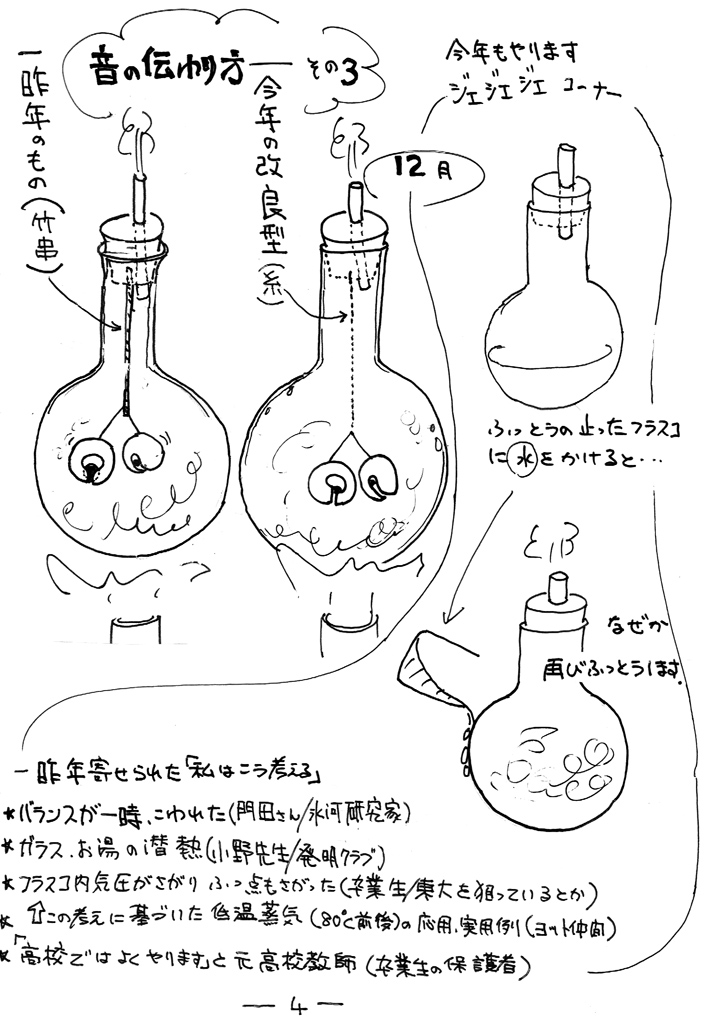 音の伝わり方 — その3
一昨年のもの(竹串)
今年の改良型(糸)
12月
今年もやります
ジェジェジェ コーナー
ふっとうの止ったフラスコ
に水をかけると・・・
なぜか
再びふっとうします.
一昨年寄せられた「私はこう考える」
*バランスが一時、こわれた(門田さん/氷河研究家)
*ガラス、お湯の潜熱(小野先生/発明クラブ)
*フラスコ内気圧がさがり ふっ点もさがった(卒業生/東大を狙っているとか)
* ⇧この考えに基づいた低温蒸気(80℃前後)の応用、実用例(ヨット仲間)
*「高校ではよくやります」と元高校教師(卒業生の保護者)
— 4 —